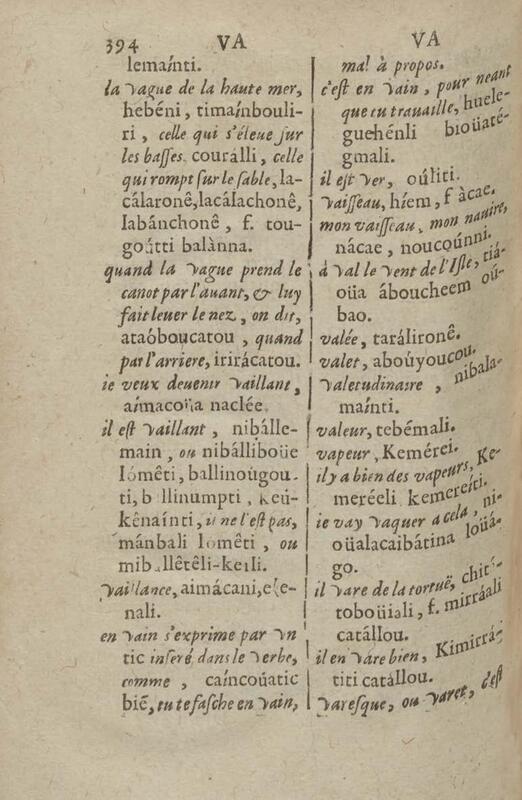 394 VA VA
lemaínti.
la vague de la haute mer,
hebéni, timaínbouli-
ri, celle qui s'éleue sur
les basses, couralli, celle
qui rompt sur le sable, la-
cálaronê, lacálachonê,
labánchonê, f. tou-
goátti balànna.
quand la vague prend le
canot par l'auant, & luy
fait leuer le nez, on dit,
ataóboucatou, quand
par l'arriere, irirácatou.
ie veux deuenir vaillant,
aímacoüa naclée.
il est vaillant, nibálle-
main, ou nibálliboüe
lómêti, ballinoúgou-
ti, b llinumpti, keú-
kênaínti, il ne l'est pas,
mánbali lomêti, ou
mib llêtêli-keili.
vaillance, aimácani, ele-
nali.
en vain s'exprime par vn
tic inseré dans le verbe,
comme, caíncoüatic
bié, tu te fasche en vain,
mal à propos.
c'est en vain, pour neant
que tu trauaille, huele-
guehénli bioüaté-
gmali.
il est ver, oúliti.
vaisseau, híem, f àcae.
mon vaisseau, mon nauire,
nácae, noucoúnni.
à val le vent de l'Isle, tiá-
oüa áboucheem oú-
bao.
valée, tarálironê.
valet, aboúyoucou.
valetudinaire, nibala-
maínti.
valeur, tebémali.
vapeur, Kemérei.
il y a bien des vapeurs, Ke-
meréeli kemereíti.
ie vay vaquer a cela, ni-
oüalacaibátina loüá-
go.
il vare de la tortuë, chité-
toboüiali, f. mirráali
catállou.
il en vare bien, Kimirrá-
titi catállou.
varesque, ou varet, c'est